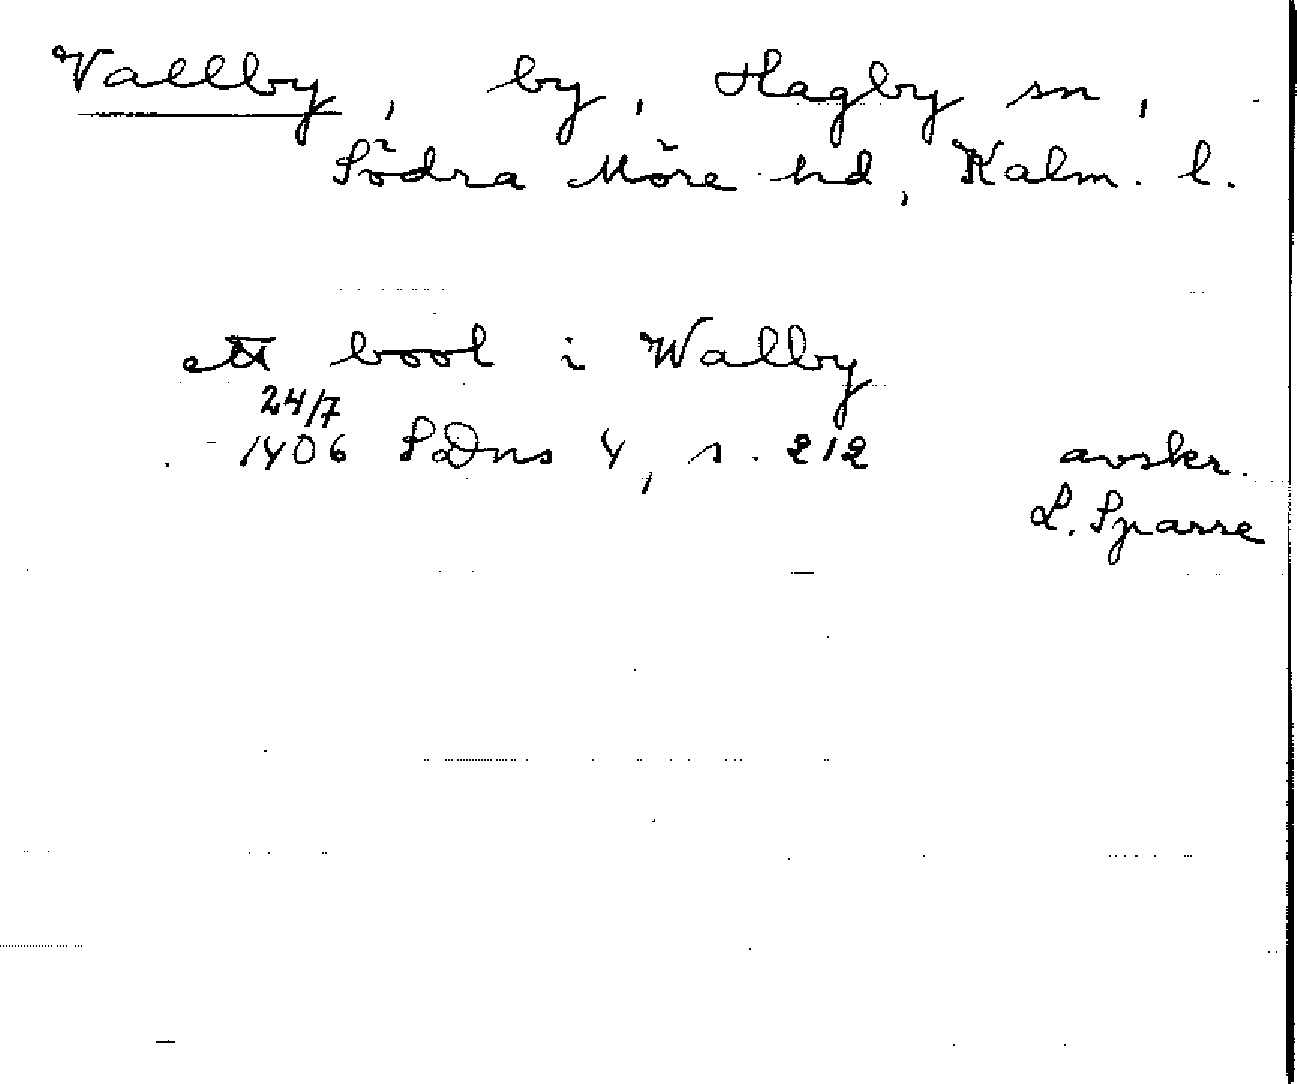 Vallby, by, Hagby sn,
Södra Möre hd, Kalm. l.
ett bool i Walby
24/7
1406 SDns 4, s. 212 avskr.
L. Sparre